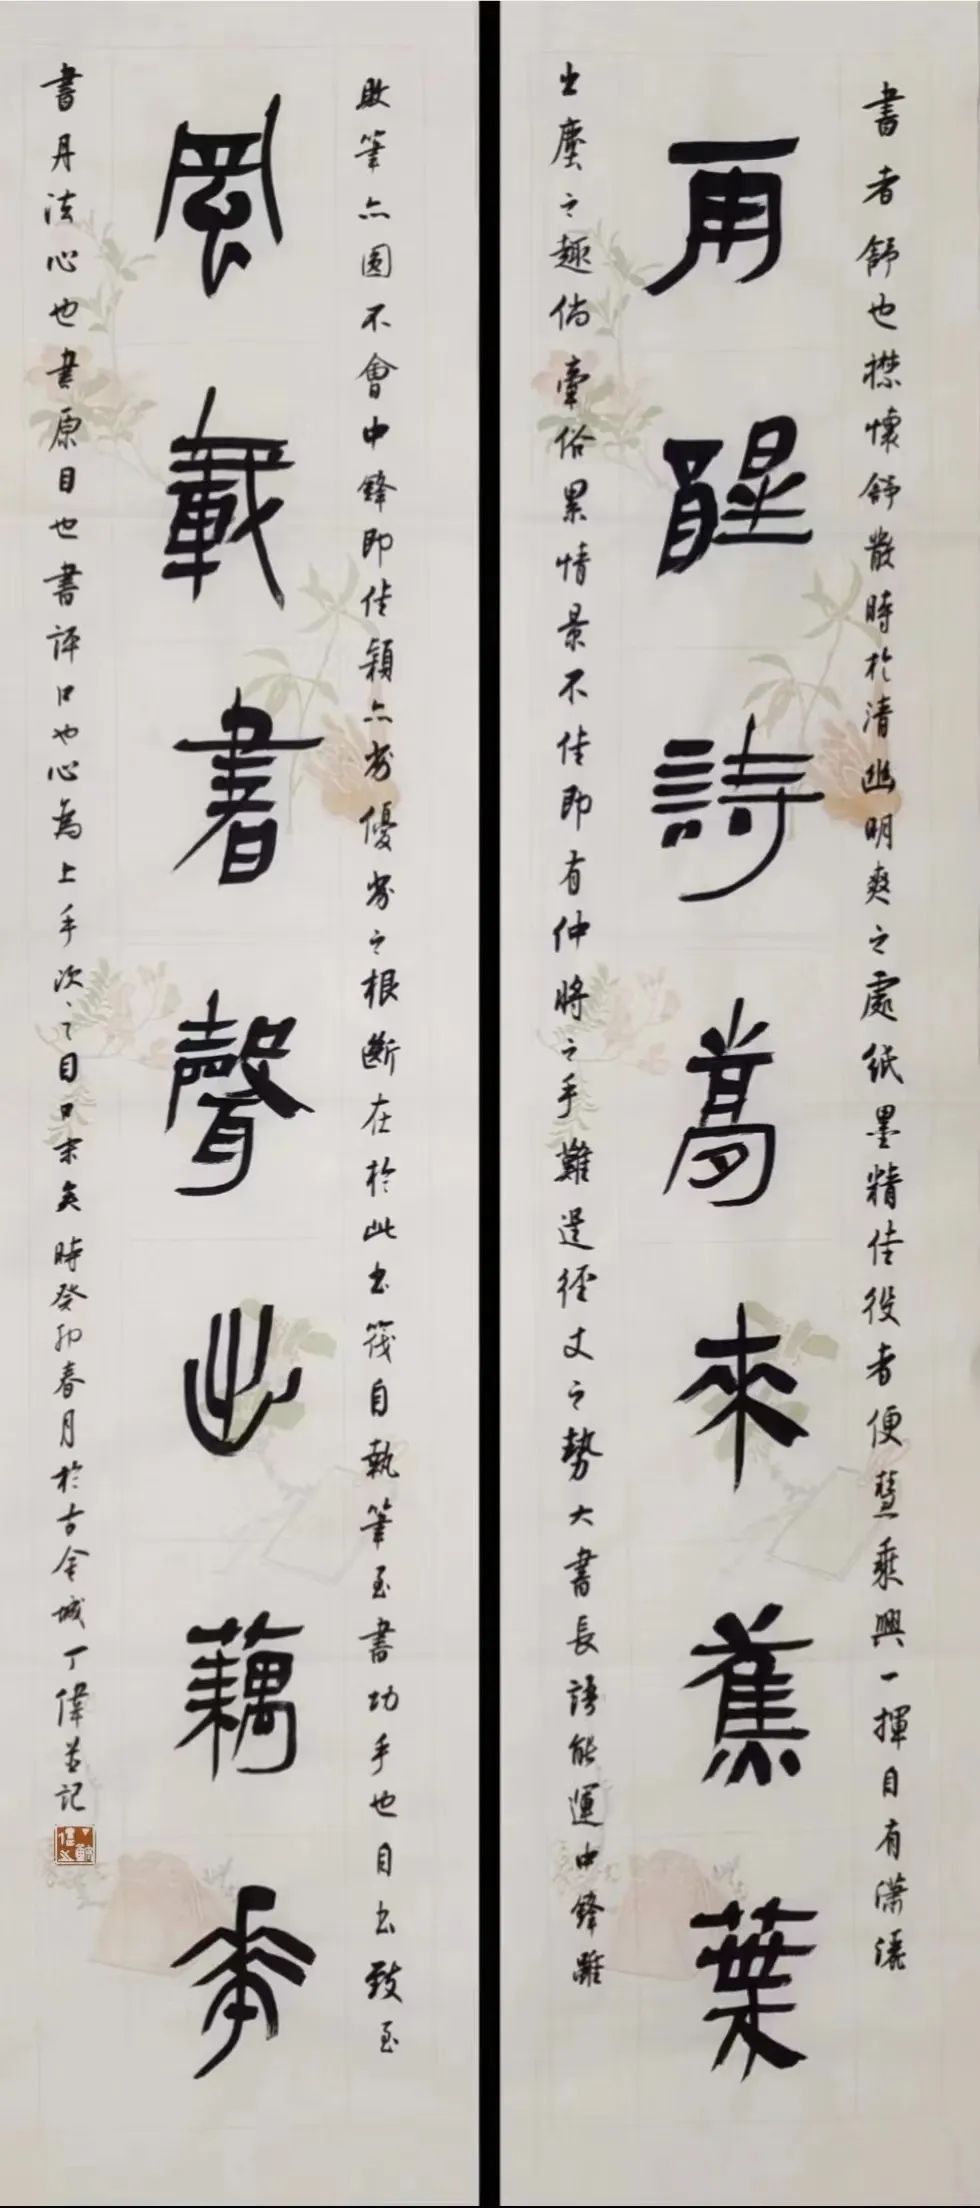 書者舒也襟懷舒散時於清幽明爽之處紙墨精佳役者便慧乘興一揮自有瀟灑
雨醒詩夢來蕉葉
出塵之趣倘牽俗累情景不佳即有仲將之手難逞徑丈之勢大書長語能運中鋒雖
敗筆亦圓不會中鋒即佳穎亦劣優劣之根斷在於此書筏自執筆至書功手也自書致至
風載書聲出藕花
書丹法心也書原目也書評口也心為上手次之目口末矣時癸卯春月於古金城丁偉並記